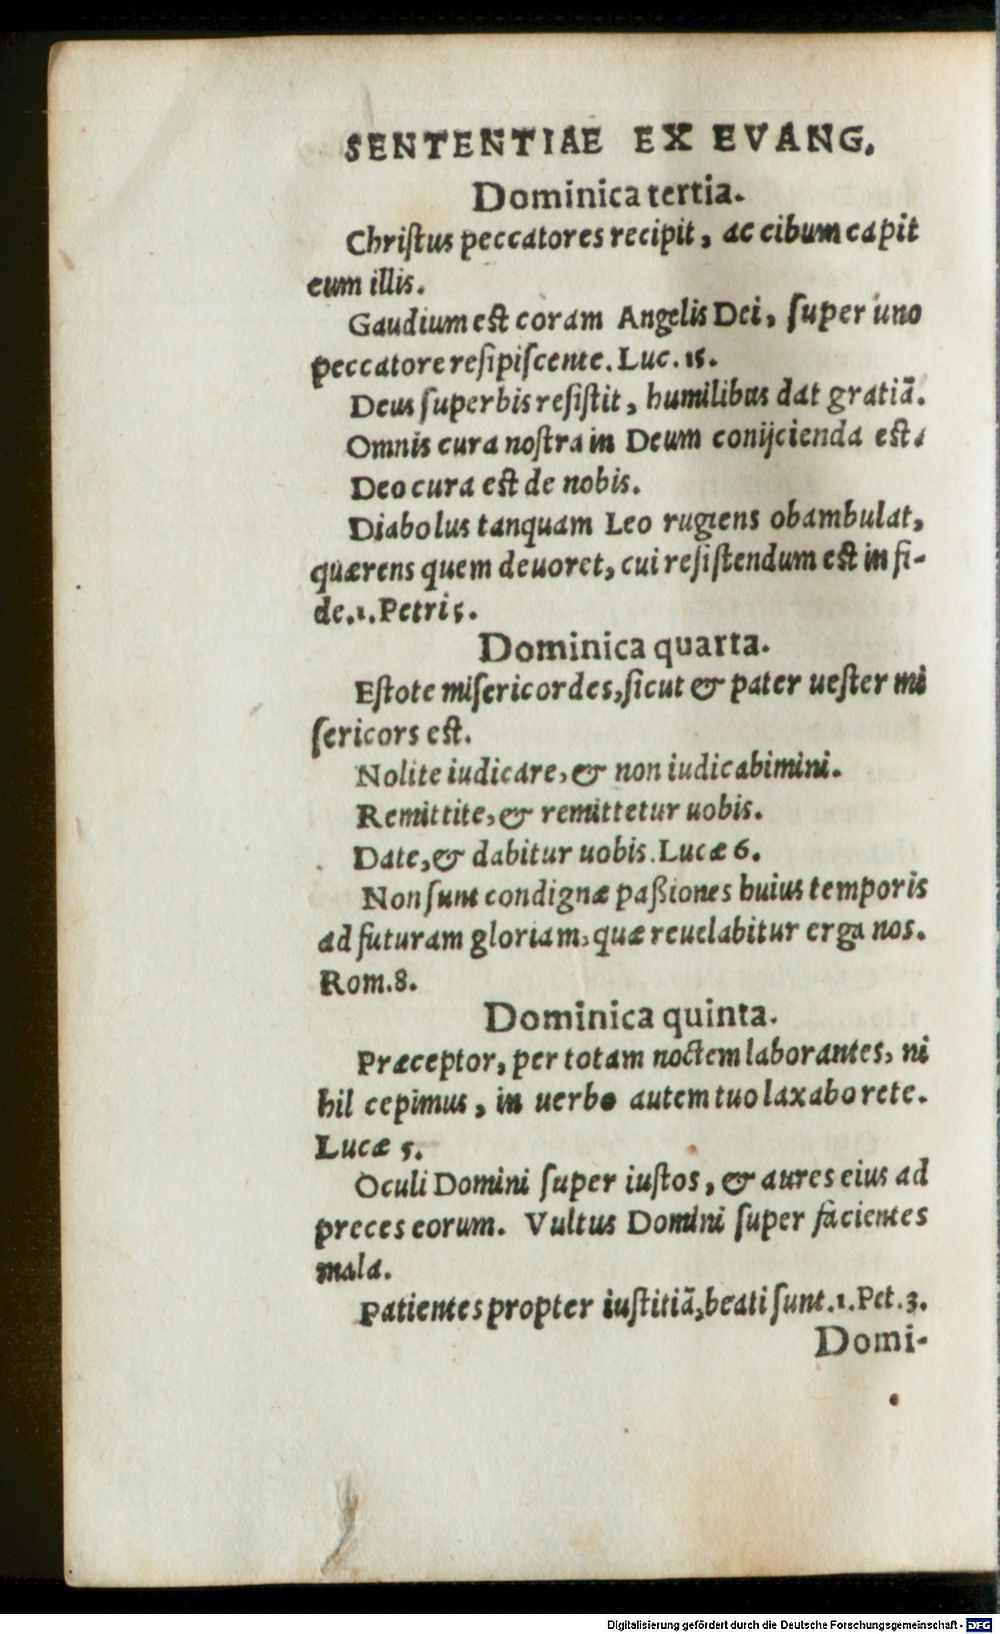 SENTENTIAE EX EVANG.
Dominica tertia.
Christus peccatores recipit, ac cibum capit
cum illis.
Gaudium est coram Angelis Dei, super uno
peccatore resipiscente. Luc. 15.
Deus superbis resistit, humilibus dat gratiã.
Omnis cura nostra in Deum conijcienda est:
Deo cura est de nobis.
Diabolus tanquam Leo rugiens obambulat,
quærens quem deuoret, cui resistendum est in fi-
de. 1. Petri 5.
Dominica quarta.
Estote misericordes, sicut & pater uester mi
sericors est.
Nolite iudicare, & non iudicabimini.
Remittite, & remittetur uobis.
Date, & dabitur uobis. Lucæ 6.
Non sunt condignæ paßiones huius temporis
ad futuram gloriam, quæ reuelabitur erga nos.
Rom. 8.
Dominica quinta.
Præceptor, per totam noctem laborantes, ni
hil cepimus, in uerbo autem tuo laxabo rete.
Lucæ 5.
Oculi Domini super iustos, & aures eius ad
preces eorum. Vultus Domini super facientes
mala.
Patientes propter iustitiã, beati sunt. 1. Pet. 3.
Domi-
Digitalisierung gefördert durch die Deutsche Forschungsgemeinschaft - DFG